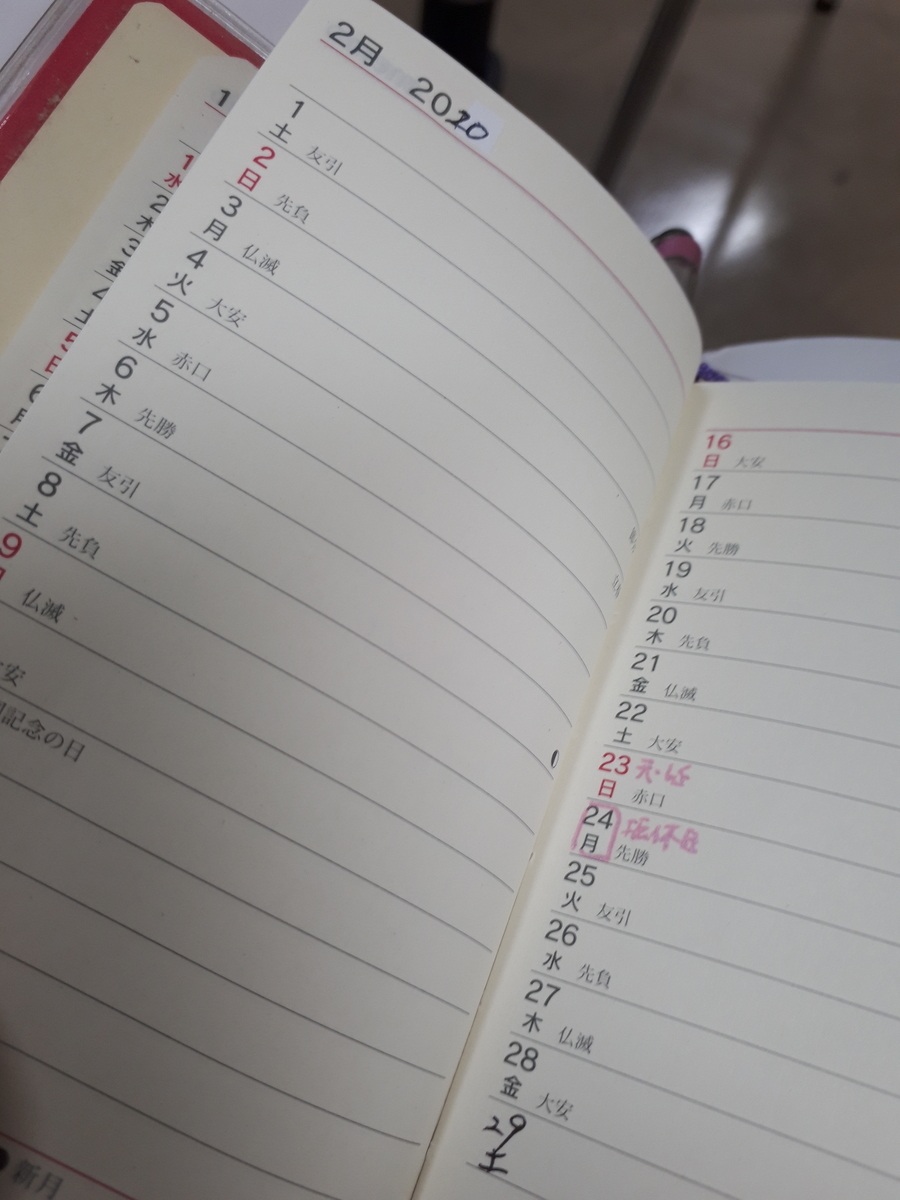 2月 2020
1
土 友引
2
日 先負
3
月 仏滅
4
火 大安
5
水 赤口
6
木 先勝
7
金 友引
8
土 先負
9
仏滅
安
記念の日
新月
1
1
水
2
木
3
金
4
土
5
日
6
月
16
日 大安
17
月 赤口
18
火 先勝
19
水 友引
20
木 先負
21
金 仏滅
22
土 大安
23 天・誕
日 赤口
24 振休日
月 先勝
25
火 友引
26
水 先負
27
木 仏滅
28
金 大安
29
土